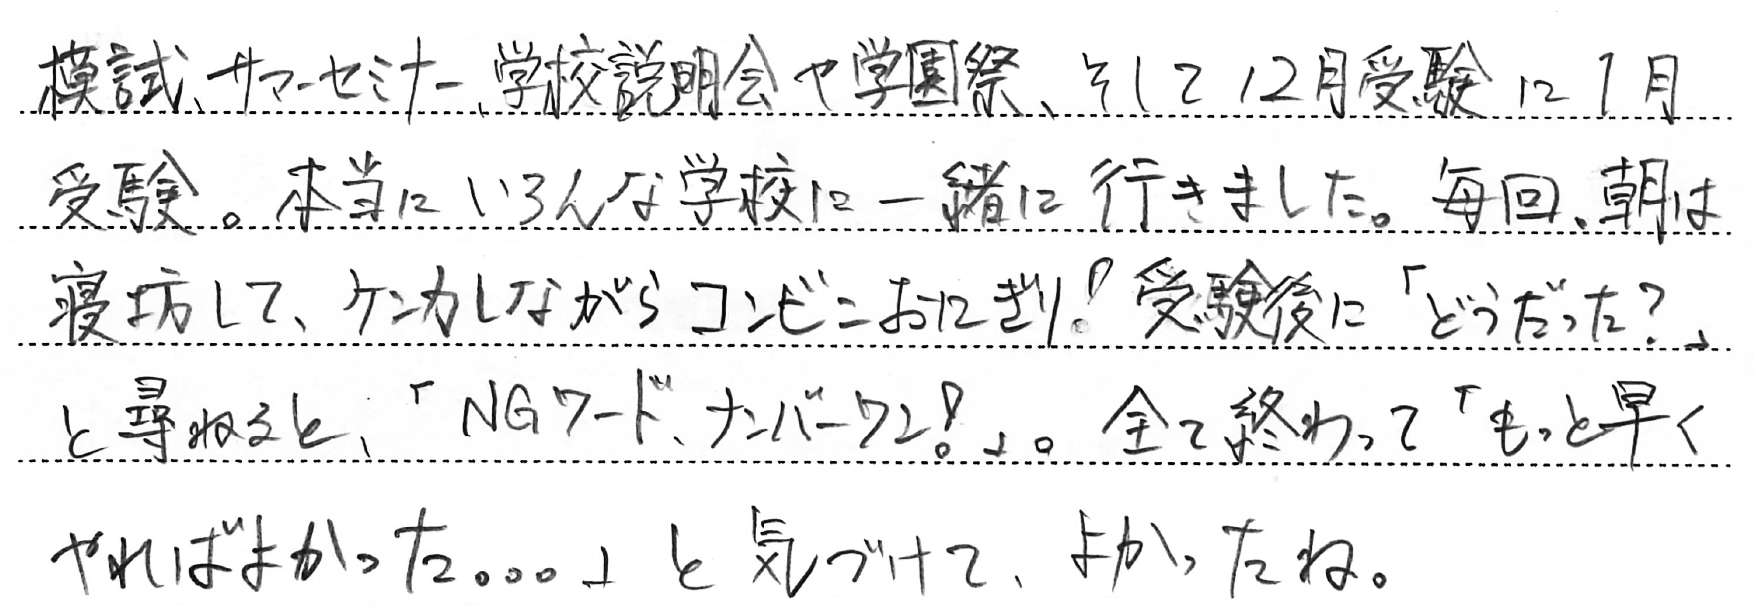 模試、サマーセミナー、学校説明会や学園祭、そして12月受験に1月
受験。本当にいろんな学校に一緒に行きました。毎回、朝は
寝坊して、ケンカしながらコンビニおにぎり!受験後に「どうだった?」
と尋ねると、「NGワード、ナンバーワン!」。全て終わって「もっと早く
やればよかった。。。」と気づけて、よかったね。